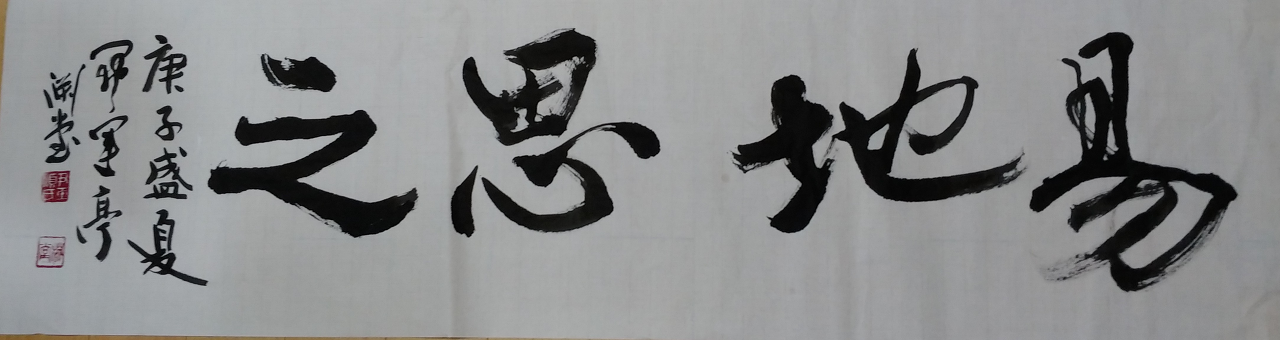 易地思之
庚子盛夏
亭
堂